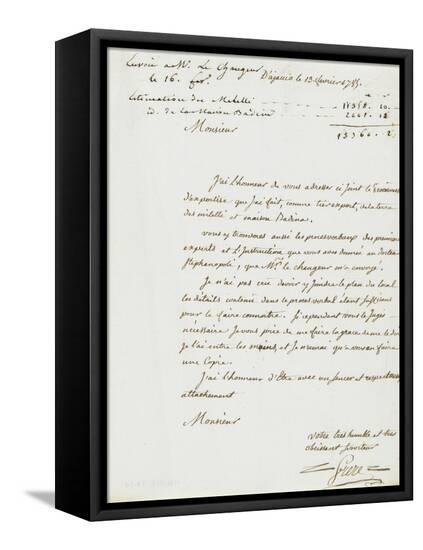 le 16. D'ajaccio le 13 fevrier 1785.
Estimation des Milelli
id. de la Maison Badine
Monsieur
J'ai l'honneur de vous adresser ci joint le
d'expertise que J'ai fait, comme tier expert, de la terre
des milelli et maison Badina.
vous y trouveres aussi les procesverbaux des premiers
experts et L'Instruction que vous avez donnée au
que Mr. le changeur m'a envoyé.
Je n'ai pas cru devoir y joindre le plan du local
les détails contenu dans le procès verbal étant suffisent
pour le faire connoitre. Si cependant vous le Jugés
necessaire Je vous prie de me faire la grace de me le dire
Je l'ai entre les mains, et Je n'aurai qu'a en faire
une Copie.
J'ai L'honneur d'Etre avec un sincer et respectueux
attachement
Monsieur
votre tres humble et tres
obeissant serviteur